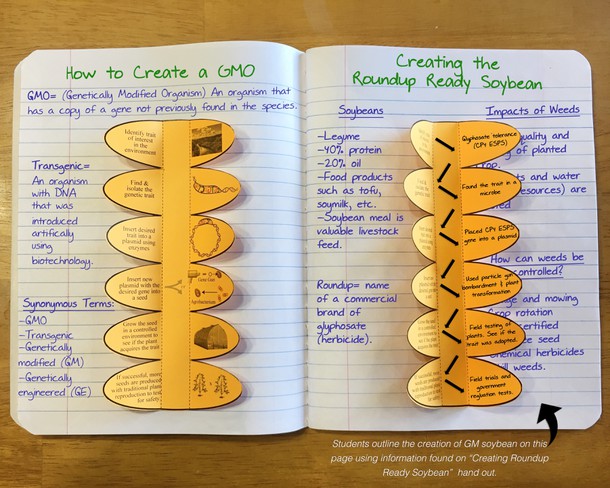 How to Create a GMO
GMO= (Genetically Modified Organism) An organism that
has a copy of a gene not previously found in the species.
Transgenic=
An organism
with DNA
that was
introduced
artifically
using
biotechnology.
Synonymous Terms:
-GMO
-Transgenic
-Genetically
modified (GM)
-Genetically
engineered (GE)
Identify trait
of interest
in the
environment
Find &
Isolate the
genetic trait
Insert desired
trait into a
plasmid using
enzymes
Insert new
plasmid with the
desired gene
into a seed
Gene Gun
Agrobacterium
Grow the seed
in a controlled
environment to
see if the plant
acquires the trait
If successful, more
seeds are produced
with traditional plant
reproduction to test
for safety.
Creating the
Roundup Ready Soybean
Soybeans
-Legume
-40% protein
-20% oil
-Food products
such as tofu,
soymilk, etc.
-Soybean meal is
valuable livestock
feed.
Roundup= name
of a commercial
brand of
glyphosate
(herbicide).
Glyphosate tolerance
(CP4 ESPS)
Found the trait in a
microbe
Placed CP4 ESPS
gene into a plasmid
Used particle gun
bombardment & plant
transformation
Field testing of
plants. See if the
trait was adopted.
Field trials and
government
regluation tests.
Impacts of Weeds
quality and
of planted
and water
resources) are
How can weeds be
controlled?
and mowing
rotation
certified
seed
chemical herbicides
weeds.
Students outline the creation of GM soybean on this
page using information found on "Creating Roundup
Ready Soybean" hand out.